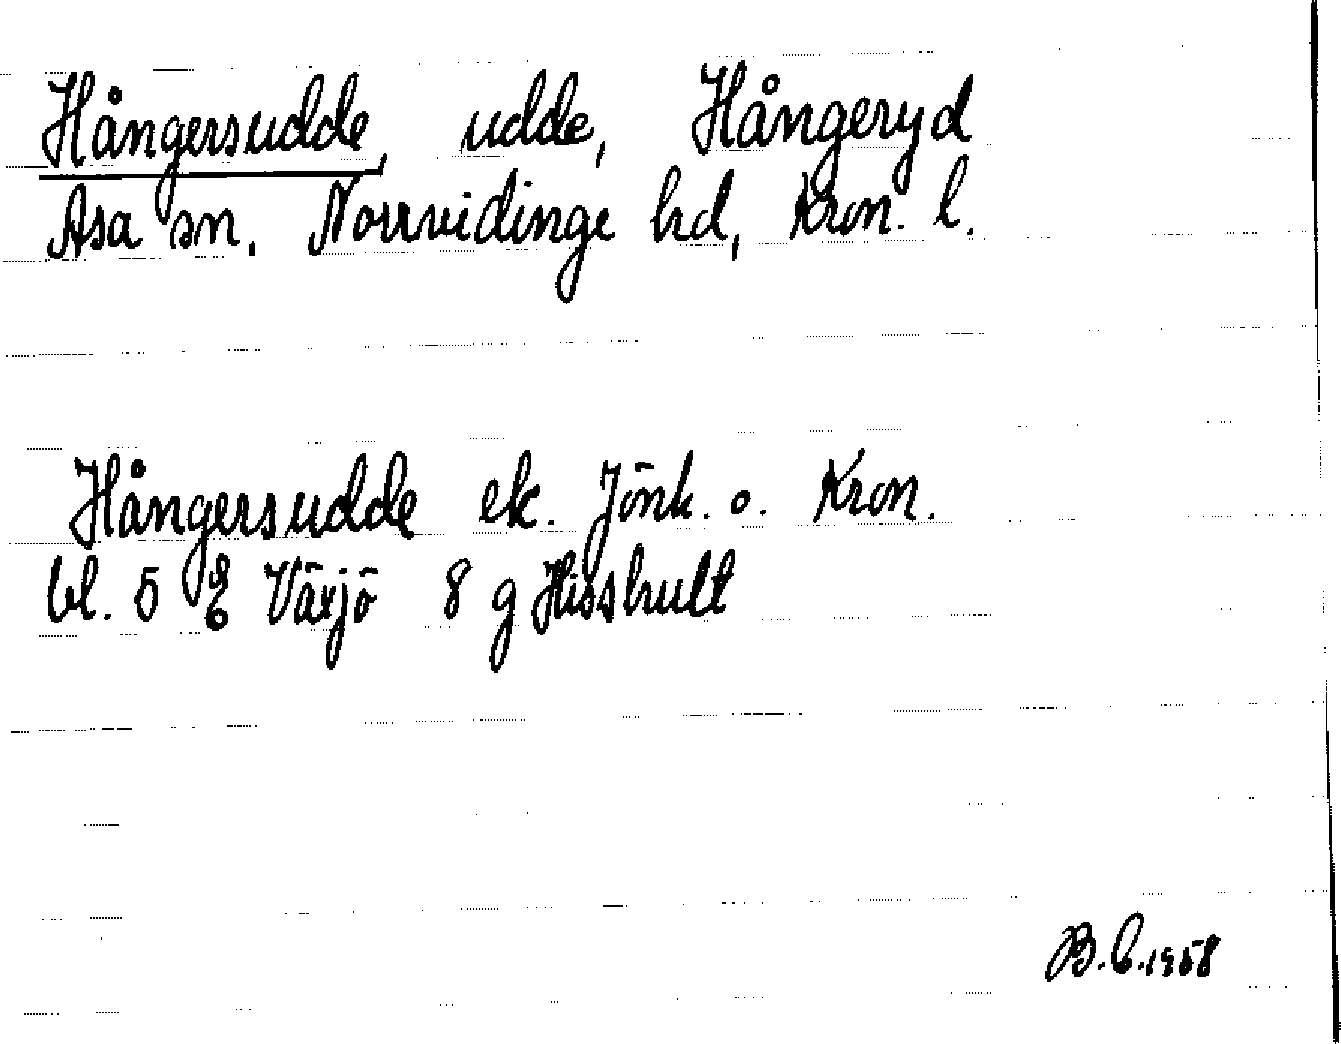 Hångersudde, udde, Hångeryd
Asa sn. Norrvidinge hd, Kron. l.
Hångersudde ek. Jönk. o. Kron.
bl. 5 E Växjö 8 g Hisshult
B.C.1958